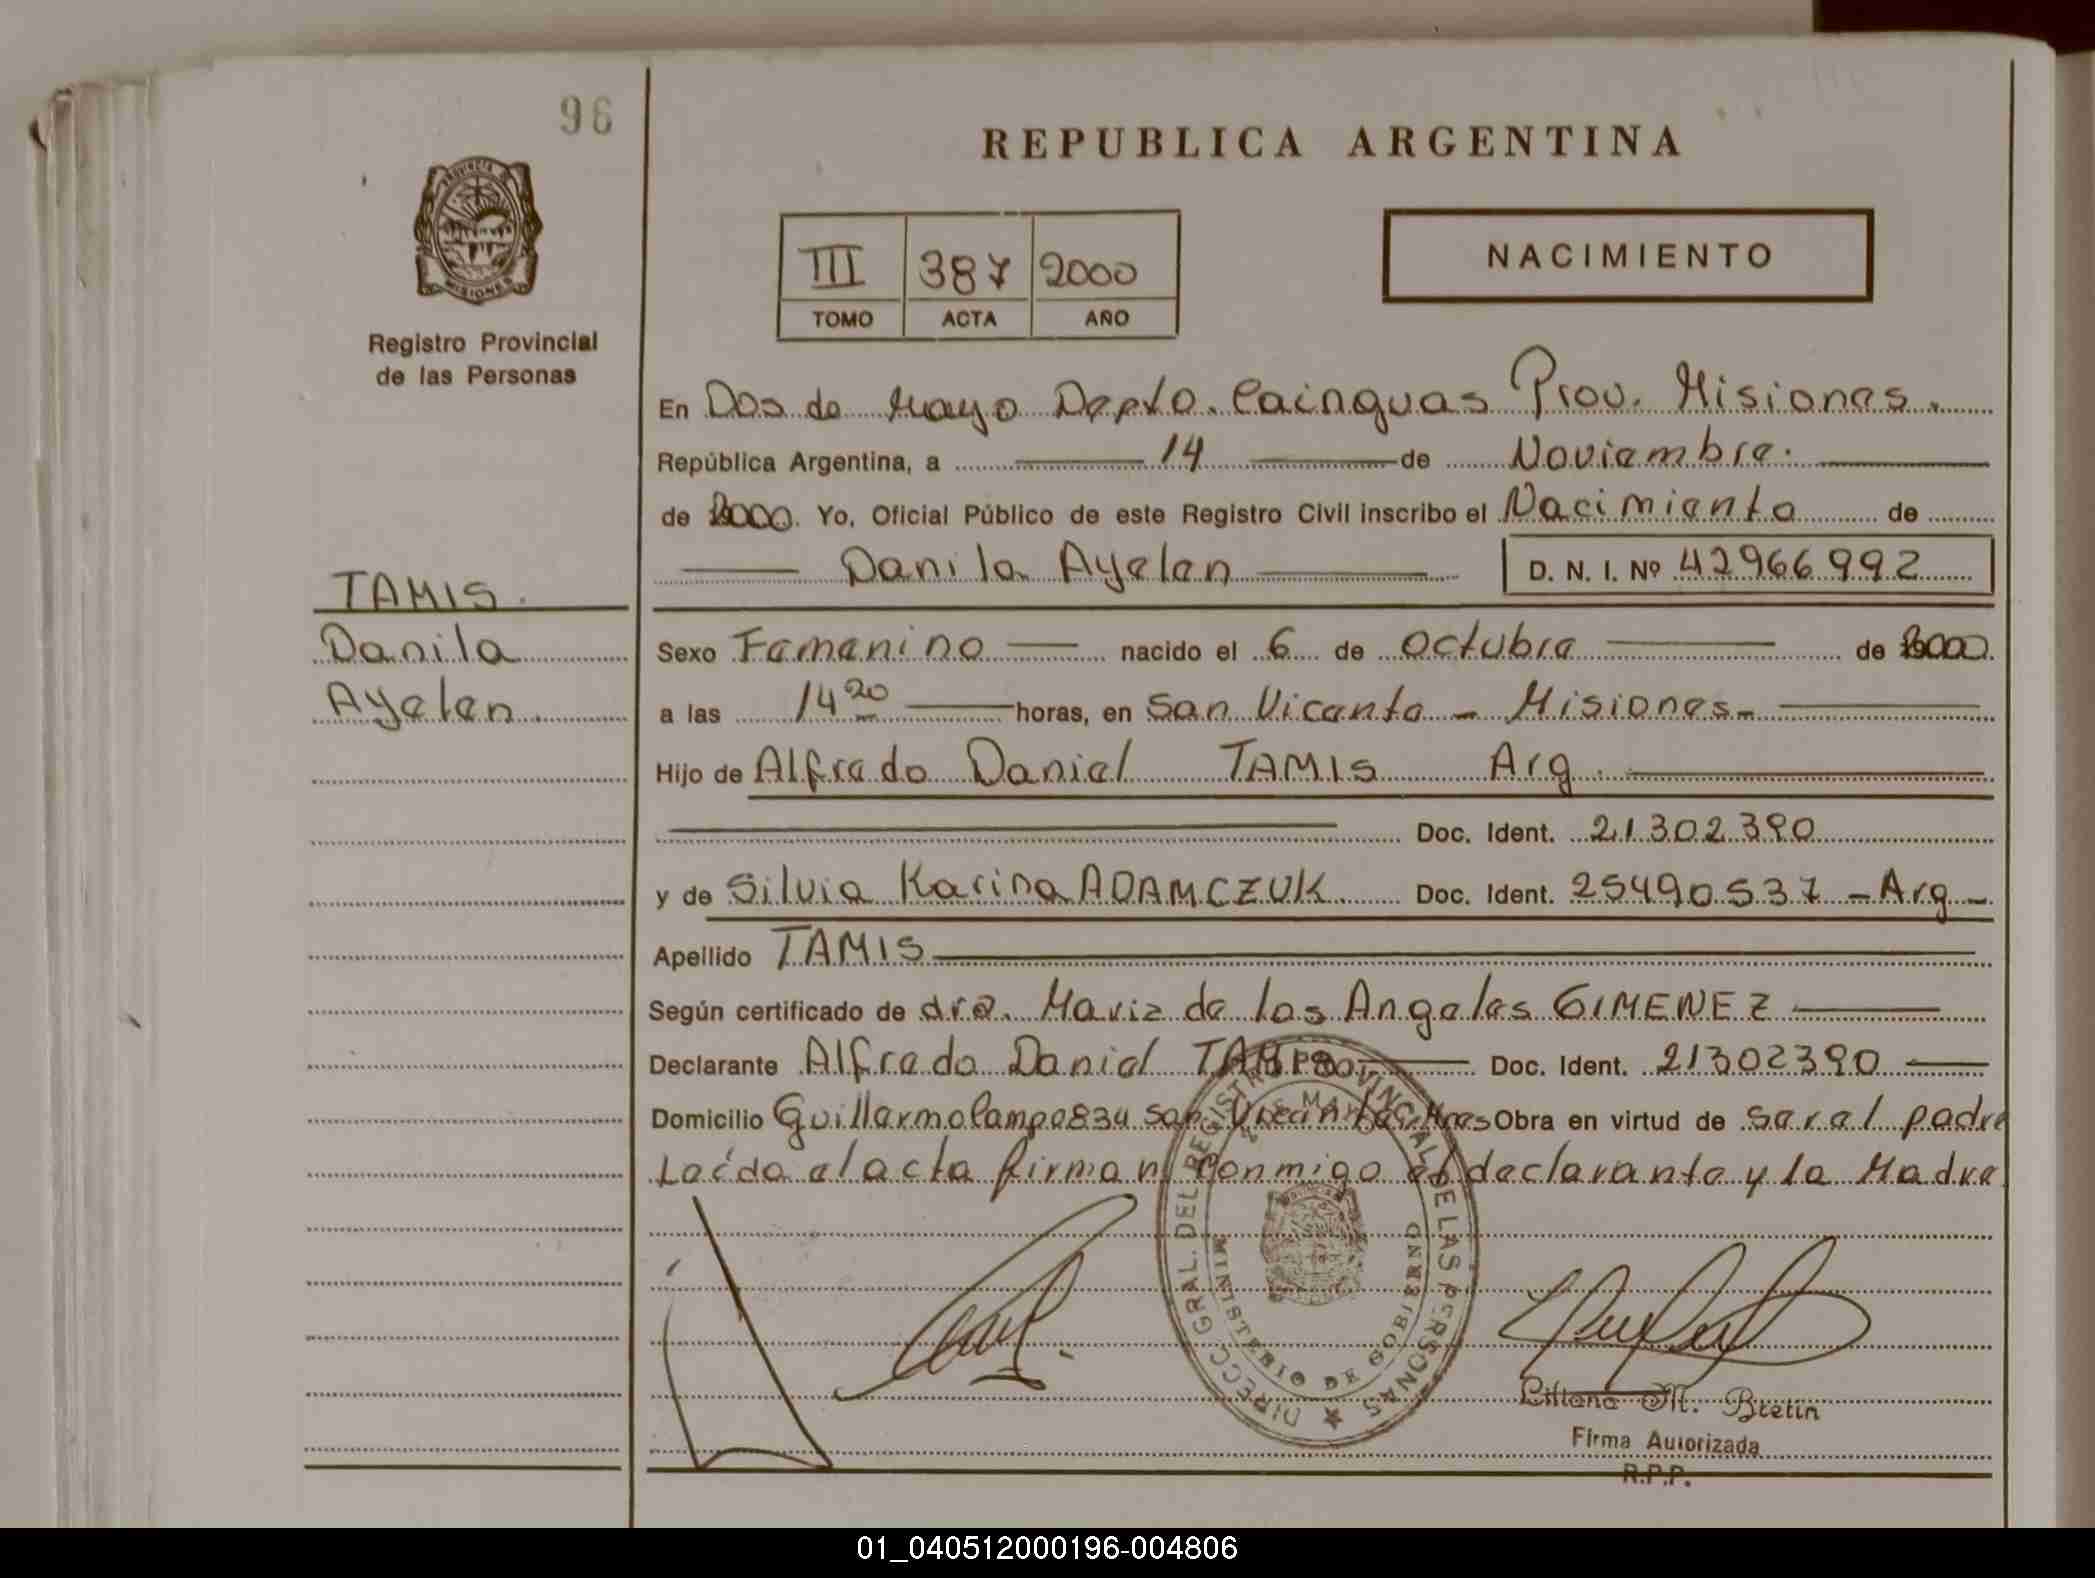 96
REPUBLICA ARGENTINA
PROVINCIA DE MISIONES
Registro Provincial
de las Personas
III 387 2000
TOMO ACTA AÑO
NACIMIENTO
En Dos de Mayo Depto. Cainguas Prov. Misiones.
República Argentina, a 14 de Noviembre.
de 2000. Yo, Oficial Público de este Registro Civil inscribo el Nacimiento de
Danila Ayelen D. N. I. Nº 42966992
TAMIS.
Danila
Ayelen.
Sexo Femenino nacido el 6 de Octubre de 2000.
a las 14 20 horas, en San Vicente - Misiones-
Hijo de Alfredo Daniel TAMIS Arg.
Doc. Ident. 21302390
y de Silvia Karina ADAMCZUK Doc. Ident. 25490537 - Arg -
Apellido TAMIS
Según certificado de dra. Maria de los Angeles GIMENEZ
Declarante Alfredo Daniel TAMIS Doc. Ident. 21302390
Domicilio Guillermo Campo 834 San Vicente Mnes Obra en virtud de ser el padre
Leída el acta firman conmigo el declarante y la Madre
DIRECC GRAL. DEL REGISTRO PROVINCIAL DE LAS PERSONAS
MINISTERIO DE GOBIERNO
Liliana M. Bretin
Firma Autorizada
R.P.P.
01_040512000196-004806